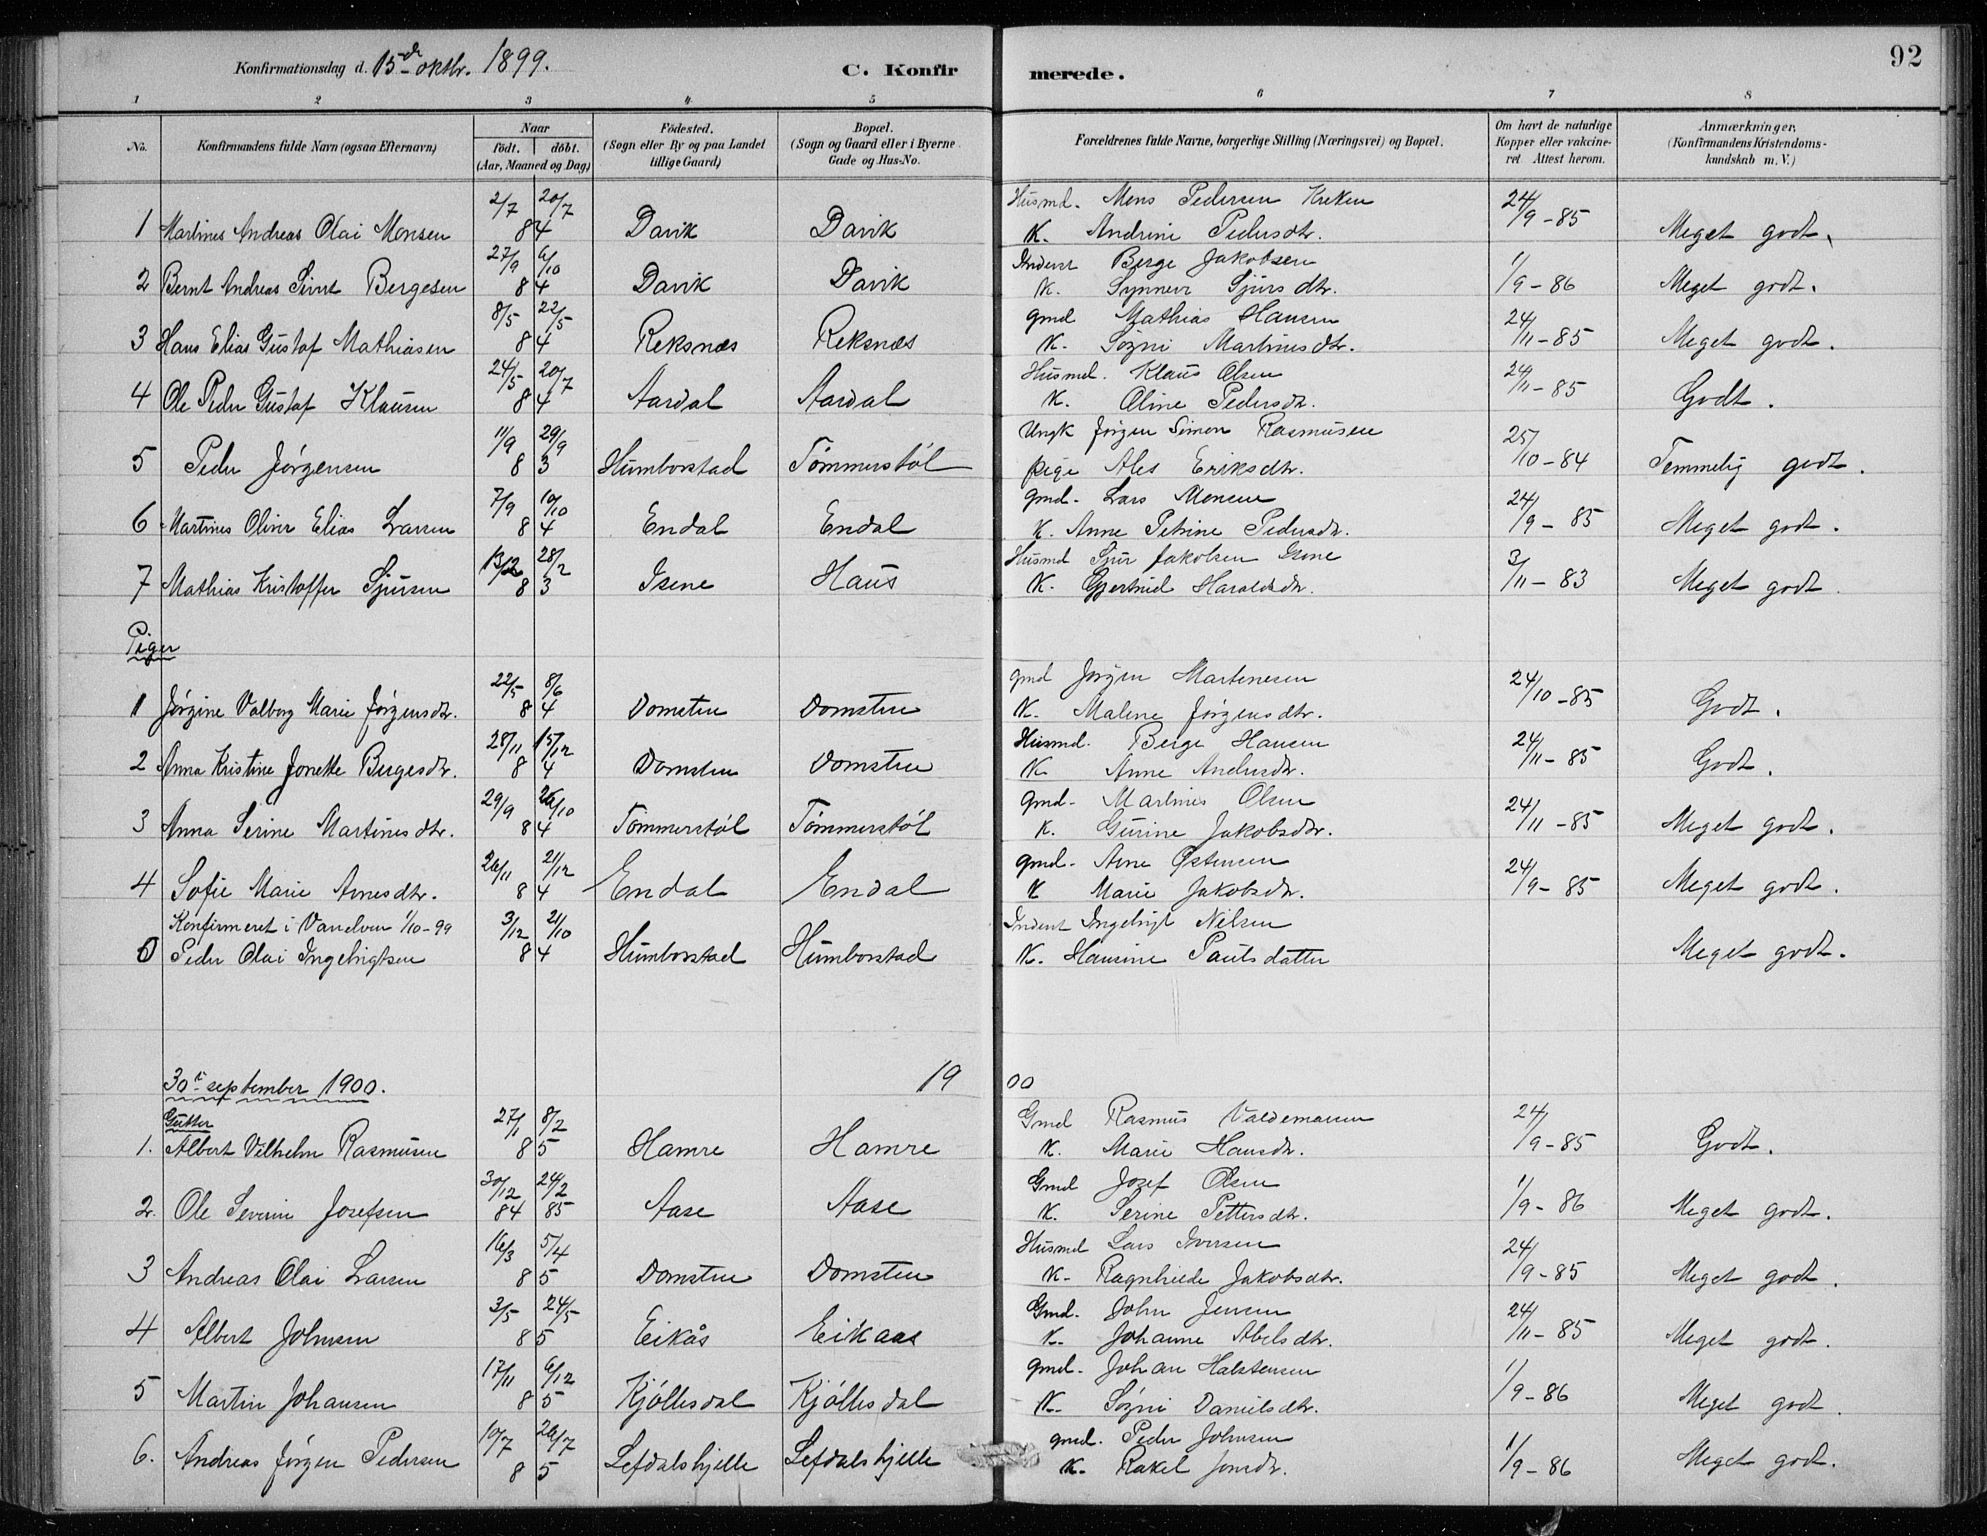 92
Konfirmationsdag d. 15de oktbr. 1899. C. Konfirmerede.
1 2 3 4 5 6 7 8
No. Konfirmandens fulde Navn (ogsaa Efternavn) Naar født. døbt. (Aar, Maaned og Dag) Fødested. (Sogn eller By og paa Landet tillige Gaard) Bopæl. (Sogn og Gaard eller i Byerne Gade og Hus-No. Forældrenes fulde Navne, borgerlige Stilling (Næringsvei) og Bopæl. Om havt de naturlige Kopper eller vakcineret. Attest herom. Anmærkninger, (Konfirmandens Kristendomskundskab m. V.)
2/7 20/7 Husmd. Mons Pedersen Kreken 24/9-85
1 Martines Andreas Olai Monsen 84 Davik Davik K. Andrine Pedersdtr. Meget godt.
27/9 6/10 Inderst Berge Jakobsen 1/9-86
2 Bernt Andreas Sivert Bergesen 84 Davik Davik K. Synneve Sjursdtr. Meget godt.
8/5 22/5 gmd Mathias Hansen 24/11-85
3 Hans Elias Gustaf Mathiasen 84 Reksnæs Reksnæs K. Søgni Martinesdtr. Meget godt.
24/5 20/7 Husmd. Klaus Olsen 24/11-85
4 Ole Peder Gustaf Klausen 84 Aardal Aardal K. Oline Pedersdtr. Godt.
11/9 29/9 Ungk Jørgen Simon Rasmusen 25/10-84
5 Peder Jørgensen 83 Humborstad Tømmerstøl pige Ales Eriksdtr. Temmelig godt.
7/9 10/10 gmd. Lars Monsen 24/9-85
6 Martines Oliver Elias Larsen 84 Endal Endal K. Anne Petrine Pedersdtr. Meget godt.
13/12 28/2 Husmd Sjur Jakobsen Isene 3/11-83
7 Mathias Kristoffer Sjursen 83 Isene Haus K. Gjertrud Haraldsdtr. Meget godt.
Piger
22/5 8/6 gmd Jørgen Martinesen 24/10-85
1 Jørgine Valborg Marie Jørgensdtr. 84 Domsten Domsten K. Malene Jørgensdtr. Godt.
28/11 15/12 Husmd. Berge Hansen 24/11-85
2 Anna Kristine Jonette Bergesdtr. 84 Domsten Domsten K Anne Andersdtr. Godt.
29/9 26/10 gmd. Martines Olsen 24/11-85
3 Anna Serine Martinesdtr. 84 Tømmerstøl Tømmerstøl K. Gurine Jakobsdtr. Meget godt.
26/11 21/12 gmd. Arne Østensen 24/9-85
4 Sofie Marie Arnesdtr. 84 Endal Endal K Marie Jakobsdtr. Meget godt.
Konfirmeret i Vanelven 1/10-99 3/12 21/10 Inderst Ingebrigt Nilsen
0 Peder Olai Ingebrigtsen 84 Humborstad Humborstad K. Hansine Paulsdatter Meget godt.
30te september 1900. 1900
Gutter 27/1 8/2 Gmd Rasmus Valdemarsen 24/9-85
1. Albert Vilhelm Rasmusen 85 Hamre Hamre K. Marie Hansdtr. Godt.
30/12 24/2 Gmd Jozef Olsen 1/9-86
2. Ole Severin Josefsen 84 85 Aase Aase K. Serine Pettersdtr. Meget godt.
16/3 5/4 Husmd Lars Iversen 24/9-85
3 Andreas Olai Larsen 85 Domsten Domsten K. Ragnhilde Jakobsdtr. Meget godt.
3/5 24/5 Gmd. John Jensen 24/11-85
4 Albert Johnsen 85 Eikås Eikaas K. Johanne Abelsdtr. Meget godt.
17/11 6/12 gmd. Johan Halstensen 1/9-86
5 Martin Johansen 85 Kjøllesdal Kjøllesdal K. Søgni Danielsdtr. Meget godt.
10/7 26/7 gmd. Peder Johnsen 1/9-86
6. Andreas Jørgen Pedersen 85 Lefdalshjelle Lefdalshjelle K. Rakel Jonsdtr. Meget godt.